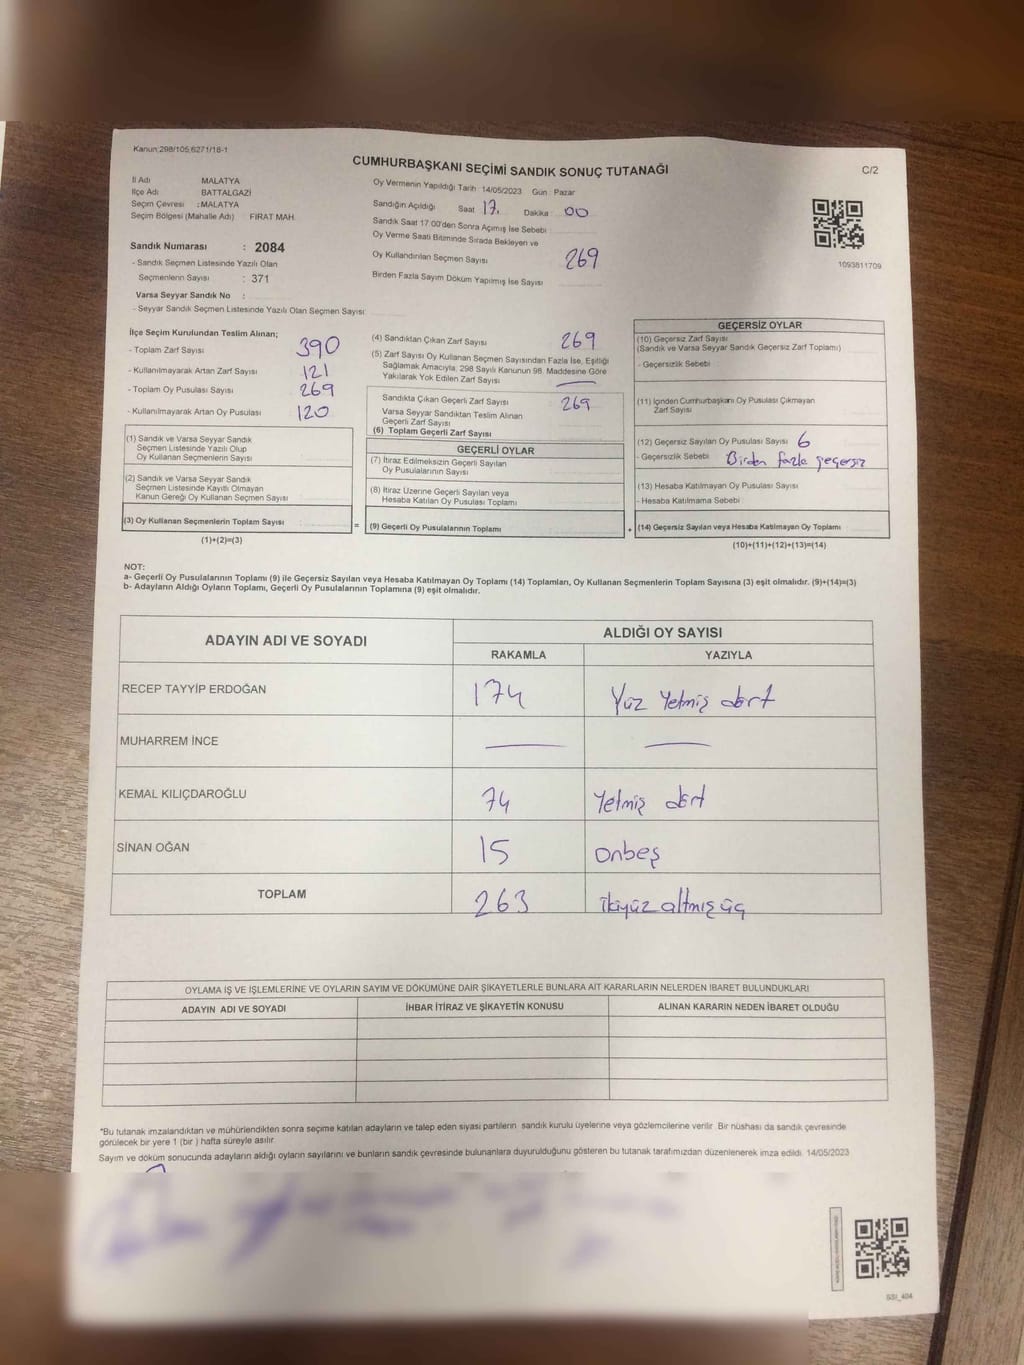 Kanun:298/105,6271/18-1
CUMHURBAŞKANI SEÇİMİ SANDIK SONUÇ TUTANAĞI
C/2
İl Adı MALATYA
İlçe Adı BATTALGAZİ
Seçim Çevresi :MALATYA
Seçim Bölgesi (Mahalle Adı) FIRAT MAH.
Oy Vermenin Yapıldığı Tarih 14/05/2023 Gün Pazar
Sandığın Açıldığı Saat 17. Dakika : 00
Sandık Saat 17:00'den Sonra Açılmış İse Sebebi
Oy Verme Saati Bitiminde Sırada Bekleyen ve
Oy Kullandırılan Seçmen Sayısı 269
Birden Fazla Sayım Döküm Yapılmış İse Sayısı
1093811709
Sandık Numarası : 2084
- Sandık Seçmen Listesinde Yazılı Olan
Seçmenlerin Sayısı : 371
Varsa Seyyar Sandık No :
- Seyyar Sandık Seçmen Listesinde Yazılı Olan Seçmen Sayısı:
İlçe Seçim Kurulundan Teslim Alınan;
- Toplam Zarf Sayısı 390
- Kullanılmayarak Artan Zarf Sayısı 121
- Toplam Oy Pusulası Sayısı 269
- Kullanılmayarak Artan Oy Pusulası 120
(1) Sandık ve Varsa Seyyar Sandık
Seçmen Listesinde Yazılı Olup
Oy Kullanan Seçmenlerin Sayısı
(2) Sandık ve Varsa Seyyar Sandık
Seçmen Listesinde Kayıtlı Olmayan
Kanun Gereği Oy Kullanan Seçmen Sayısı
(3) Oy Kullanan Seçmenlerin Toplam Sayısı
(1)+(2)=(3)
(4) Sandıktan Çıkan Zarf Sayısı 269
(5) Zarf Sayısı Oy Kullanan Seçmen Sayısından Fazla İse, Eşitliği
Sağlamak Amacıyla, 298 Sayılı Kanunun 98. Maddesine Göre
Yakılarak Yok Edilen Zarf Sayısı
Sandıkta Çıkan Geçerli Zarf Sayısı 269
Varsa Seyyar Sandıktan Teslim Alınan
Geçerli Zarf Sayısı
(6) Toplam Geçerli Zarf Sayısı
GEÇERLİ OYLAR
(7) İtiraz Edilmeksizin Geçerli Sayılan
Oy Pusulalarının Sayısı
(8) İtiraz Üzerine Geçerli Sayılan veya
Hesaba Katılan Oy Pusulası Toplamı
= (9) Geçerli Oy Pusulalarının Toplamı
GEÇERSİZ OYLAR
(10) Geçersiz Zarf Sayısı
(Sandık ve Varsa Seyyar Sandık Geçersiz Zarf Toplamı)
- Geçersizlik Sebebi
(11) İçinden Cumhurbaşkanı Oy Pusulası Çıkmayan
Zarf Sayısı
(12) Geçersiz Sayılan Oy Pusulası Sayısı 6
- Geçersizlik Sebebi Birden fazla geçersiz
(13) Hesaba Katılmayan Oy Pusulası Sayısı
- Hesaba Katılmama Sebebi
+ (14) Geçersiz Sayılan veya Hesaba Katılmayan Oy Toplamı
(10)+(11)+(12)+(13)=(14)
NOT:
a- Geçerli Oy Pusulalarının Toplamı (9) ile Geçersiz Sayılan veya Hesaba Katılmayan Oy Toplamı (14) Toplamları, Oy Kullanan Seçmenlerin Toplam Sayısına (3) eşit olmalıdır. (9)+(14)=(3)
b- Adayların Aldığı Oyların Toplamı, Geçerli Oy Pusulalarının Toplamına (9) eşit olmalıdır.
ADAYIN ADI VE SOYADI
ALDIĞI OY SAYISI
RAKAMLA YAZIYLA
RECEP TAYYİP ERDOĞAN 174 Yüz Yetmiş dört
MUHARREM İNCE
KEMAL KILIÇDAROĞLU 74 Yetmiş dört
SİNAN OĞAN 15 Onbeş
TOPLAM 263 ikiyüz altmış üç
OYLAMA İŞ VE İŞLEMLERİNE VE OYLARIN SAYIM VE DÖKÜMÜNE DAİR ŞİKAYETLERLE BUNLARA AİT KARARLARIN NELERDEN İBARET BULUNDUKLARI
ADAYIN ADI VE SOYADI İHBAR İTİRAZ VE ŞİKAYETİN KONUSU ALINAN KARARIN NEDEN İBARET OLDUĞU
*Bu tutanak imzalandıktan ve mühürlendikten sonra seçime katılan adayların ve talep eden siyasi partilerin sandık kurulu üyelerine veya gözlemcilerine verilir. Bir nüshası da sandık çevresinde
görülecek bir yere 1 (bir ) hafta süreyle asılır.
Sayım ve döküm sonucunda adayların aldığı oyların sayılarını ve bunların sandık çevresinde bulunanlara duyurulduğunu gösteren bu tutanak tarafımızdan düzenlenerek imza edildi. 14/05/2023
SSI_404